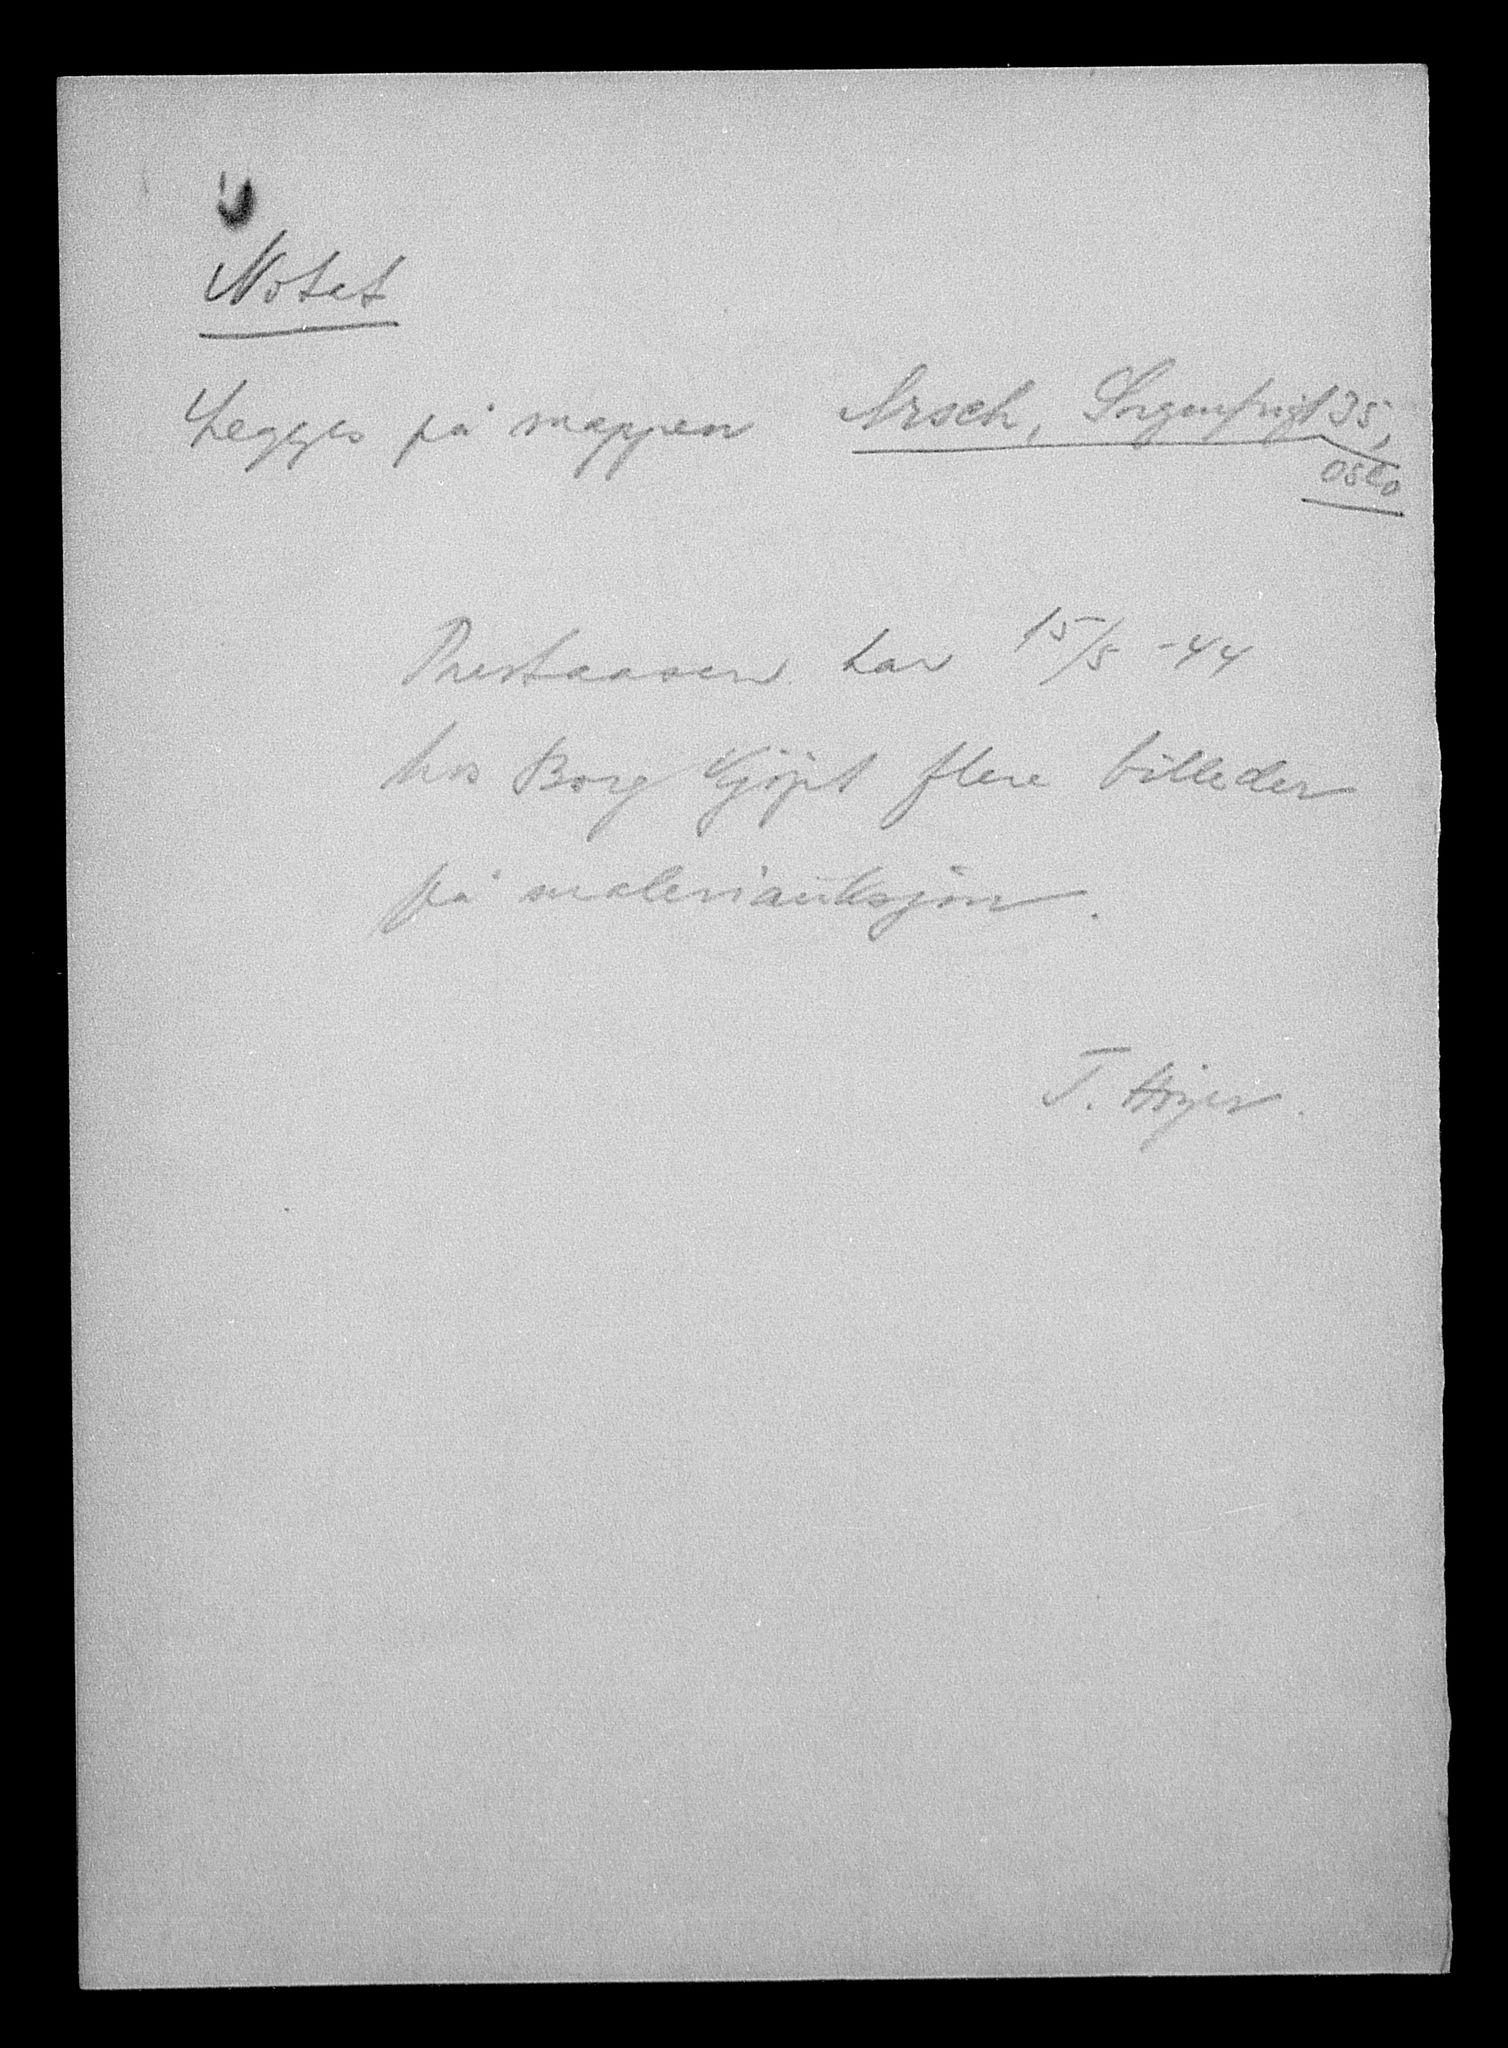 Notat
Legges på mappen Arsch, Sorgenfrigt 35,
Oslo
Prestaasen har 15/5 -44
hos Borg kjöpt flere billeder
på maleriauksjon.
T. Höyer.